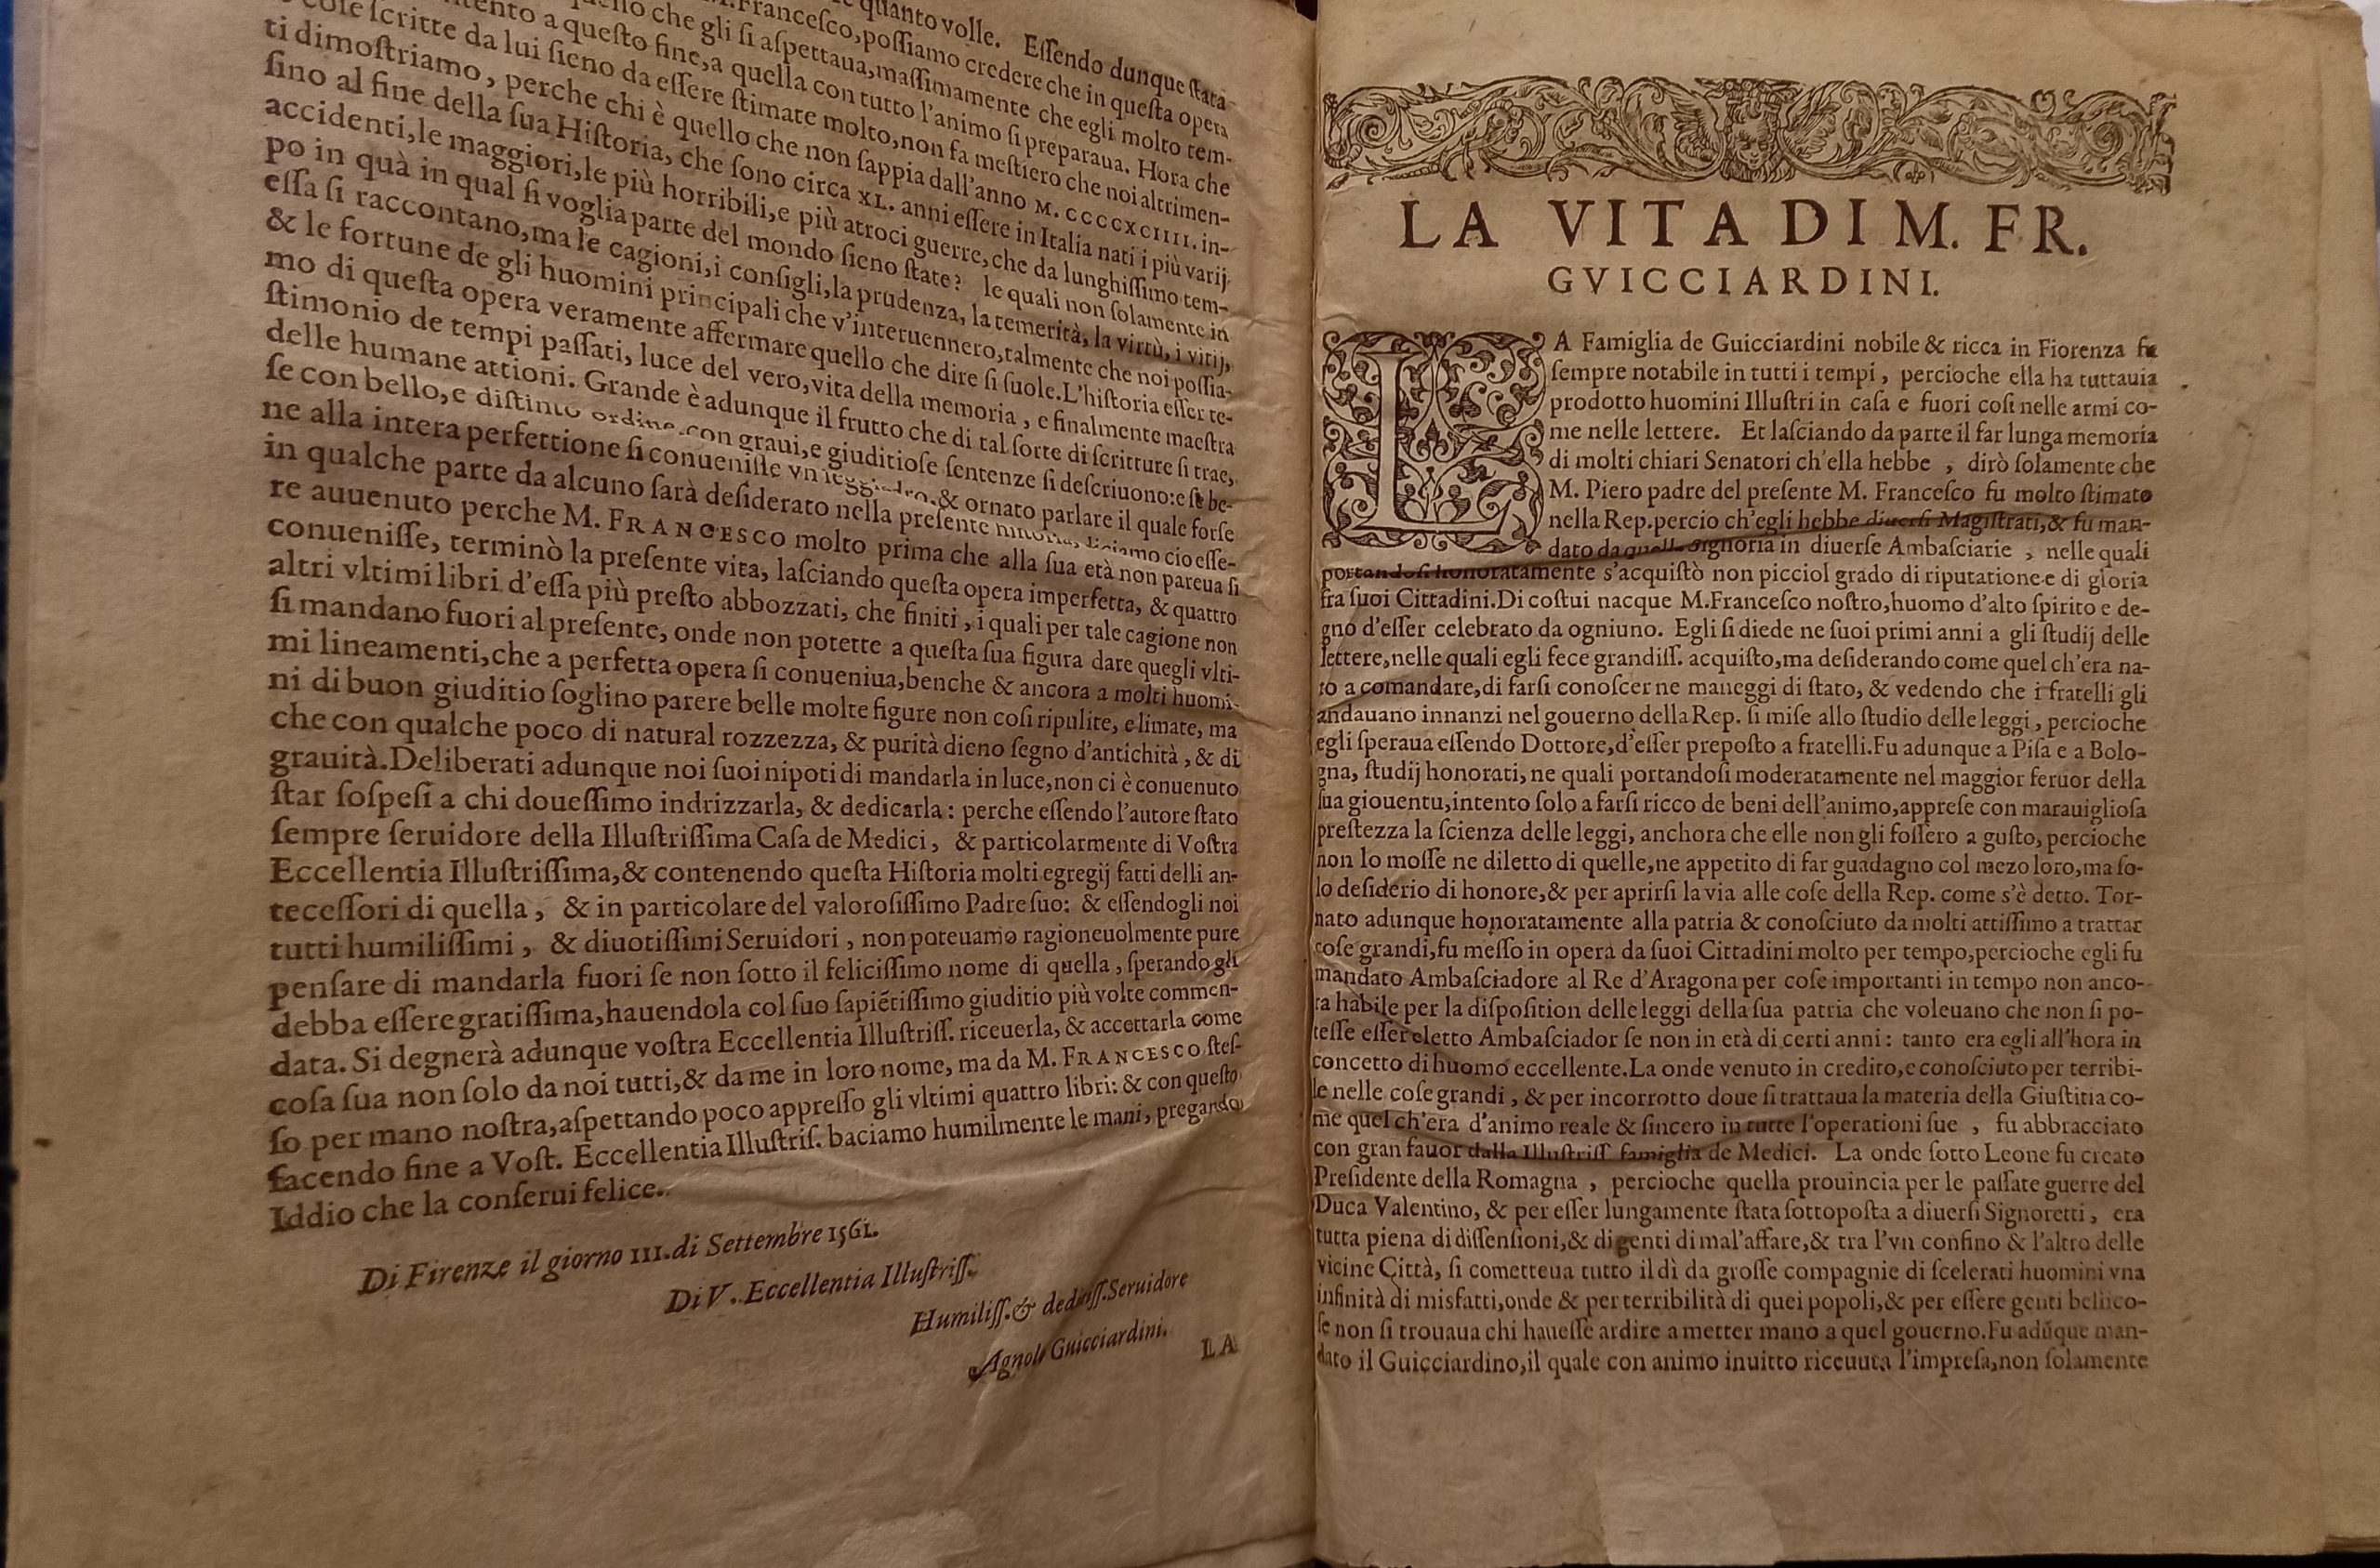 quanto volle. Eſſendo dunque ſtata
M. Franceſco, poſſiamo credere che in queſta opera
che gli ſi aſpettaua, maſſimamente che egli molto tem-
a queſto fine, a quella con tutto l'animo ſi preparaua. Hora che
coſe ſcritte da lui ſieno da eſſere ſtimate molto, non fa meſtiero che noi altrimen-
ti dimoſtriamo, perche chi è quello che non ſappia dall'anno M. CCCCXCIIII. in-
ſino al fine della ſua Hiſtoria, che ſono circa XL. anni eſſere in Italia nati i più varij
accidenti, le maggiori, le più horribili, e più atroci guerre, che da lunghiſſimo tem-
po in quà in qual ſi voglia parte del mondo ſieno ſtate? le quali non ſolamente in
eſſa ſi raccontano, ma le cagioni, i conſigli, la prudenza, la temerità, la virtù, i vitij,
& le fortune de gli huomini principali che v'interuennero, talmente che noi poſſia-
mo di queſta opera veramente affermare quello che dire ſi ſuole. L'hiſtoria eſſer te-
ſtimonio de tempi paſſati, luce del vero, vita della memoria, e finalmente maeſtra
delle humane attioni. Grande è adunque il frutto che di tal ſorte di ſcritture ſi trae,
ſe con bello, e diſtinto ordine, con graui, e giuditioſe ſentenze ſi deſcriuono: e ſe be-
ne alla intera perfettione ſi conueniſſe vn leggiadro, & ornato parlare il quale forſe
in qualche parte da alcuno ſarà deſiderato nella preſente hiſtoria, diciamo cio eſſe-
re auuenuto perche M. FRANCESCO molto prima che alla ſua età non pareua ſi
conueniſſe, terminò la preſente vita, laſciando queſta opera imperfetta, & quattro
altri vltimi libri d'eſſa più preſto abbozzati, che finiti, i quali per tale cagione non
ſi mandano fuori al preſente, onde non potette a queſta ſua figura dare quegli vlti-
mi lineamenti, che a perfetta opera ſi conueniua, benche & ancora a molti huomi-
ni di buon giuditio ſoglino parere belle molte figure non coſi ripulite, e limate, ma
che con qualche poco di natural rozzezza, & purità dieno ſegno d'antichità, & di
grauità. Deliberati adunque noi ſuoi nipoti di mandarla in luce, non ci è conuenuto
ſtar ſoſpeſi a chi doueſſimo indrizzarla, & dedicarla: perche eſſendo l'autore ſtato
ſempre ſeruidore della Illuſtriſſima Caſa de Medici, & particolarmente di Voſtra
Eccellentia Illuſtriſſima, & contenendo queſta Hiſtoria molti egregij fatti delli an-
teceſſori di quella, & in particolare del valoroſiſſimo Padre ſuo: & eſſendogli noi
tutti humiliſſimi, & diuotiſſimi Seruidori, non poteuamo ragioneuolmente pure
penſare di mandarla fuori ſe non ſotto il feliciſſimo nome di quella, ſperando gli
debba eſſere gratiſſima, hauendola col ſuo ſapiētiſſimo giuditio più volte commen-
data. Si degnerà adunque voſtra Eccellentia Illuſtriſſ. riceuerla, & accettarla come
coſa ſua non ſolo da noi tutti, & da me in loro nome, ma da M. FRANCESCO ſteſ-
ſo per mano noſtra, aſpettando poco appreſſo gli vltimi quattro libri: & con queſto
facendo fine a Voſt. Eccellentia Illuſtriſ. baciamo humilmente le mani, pregando
Iddio che la conſerui felice.
Di Firenze il giorno III. di Settembre 1561.
Di V. Eccellentia Illuſtriſſ.
Humiliſſ. & deditiſſ. Seruidore
Agnolo Guicciardini.
LA
LA VITA DI M. FR.
GVICCIARDINI.
LA Famiglia de Guicciardini nobile & ricca in Fiorenza fu
ſempre notabile in tutti i tempi, percioche ella ha tuttauia
prodotto huomini Illuſtri in caſa e fuori coſi nelle armi co-
me nelle lettere. Et laſciando da parte il far lunga memoria
di molti chiari Senatori ch'ella hebbe, dirò ſolamente che
M. Piero padre del preſente M. Franceſco fu molto ſtimato
nella Rep. percio ch'egli hebbe diuerſi Magiſtrati, & fu man-
dato da quella Signoria in diuerſe Ambaſciarie, nelle quali
portandoſi honoratamente s'acquiſtò non picciol grado di riputatione e di gloria
fra ſuoi Cittadini. Di coſtui nacque M. Franceſco noſtro, huomo d'alto ſpirito e de-
gno d'eſſer celebrato da ogniuno. Egli ſi diede ne ſuoi primi anni a gli ſtudij delle
lettere, nelle quali egli fece grandiſſ. acquiſto, ma deſiderando come quel ch'era na-
to a comandare, di farſi conoſcer ne maneggi di ſtato, & vedendo che i fratelli gli
andauano innanzi nel gouerno della Rep. ſi miſe allo ſtudio delle leggi, percioche
egli ſperaua eſſendo Dottore, d'eſſer prepoſto a fratelli. Fu adunque a Piſa e a Bolo-
gna, ſtudij honorati, ne quali portandoſi moderatamente nel maggior feruor della
ſua giouentu, intento ſolo a farſi ricco de beni dell'animo, appreſe con marauiglioſa
preſtezza la ſcienza delle leggi, anchora che elle non gli foſſero a guſto, percioche
non lo moſſe ne diletto di quelle, ne appetito di far guadagno col mezo loro, ma ſo-
lo deſiderio di honore, & per aprirſi la via alle coſe della Rep. come s'è detto. Tor-
nato adunque honoratamente alla patria & conoſciuto da molti attiſſimo a trattar
coſe grandi, fu meſſo in opera da ſuoi Cittadini molto per tempo, percioche egli fu
mandato Ambaſciadore al Re d'Aragona per coſe importanti in tempo non anco-
ra habile per la diſpoſition delle leggi della ſua patria che voleuano che non ſi po-
teſſe eſſer eletto Ambaſciador ſe non in età di certi anni: tanto era egli all'hora in
concetto di huomo eccellente. La onde venuto in credito, e conoſciuto per terribi-
le nelle coſe grandi, & per incorrotto doue ſi trattaua la materia della Giuſtitia co-
me quel ch'era d'animo reale & ſincero in tutte l'operationi ſue, fu abbracciato
con gran fauor dalla Illuſtriſſ. famiglia de Medici. La onde ſotto Leone fu creato
Preſidente della Romagna, percioche quella prouincia per le paſſate guerre del
Duca Valentino, & per eſſer lungamente ſtata ſottopoſta a diuerſi Signoretti, era
tutta piena di diſſenſioni, & di genti di mal'affare, & tra l'vn confino & l'altro delle
vicine Città, ſi cometteua tutto il dì da groſſe compagnie di ſcelerati huomini vna
infinità di misfatti, onde & per terribilità di quei popoli, & per eſſere genti bellico-
ſe non ſi trouaua chi haueſſe ardire a metter mano a quel gouerno. Fu adūque man-
dato il Guicciardino, il quale con animo inuitto riceuuta l'impreſa, non ſolamente